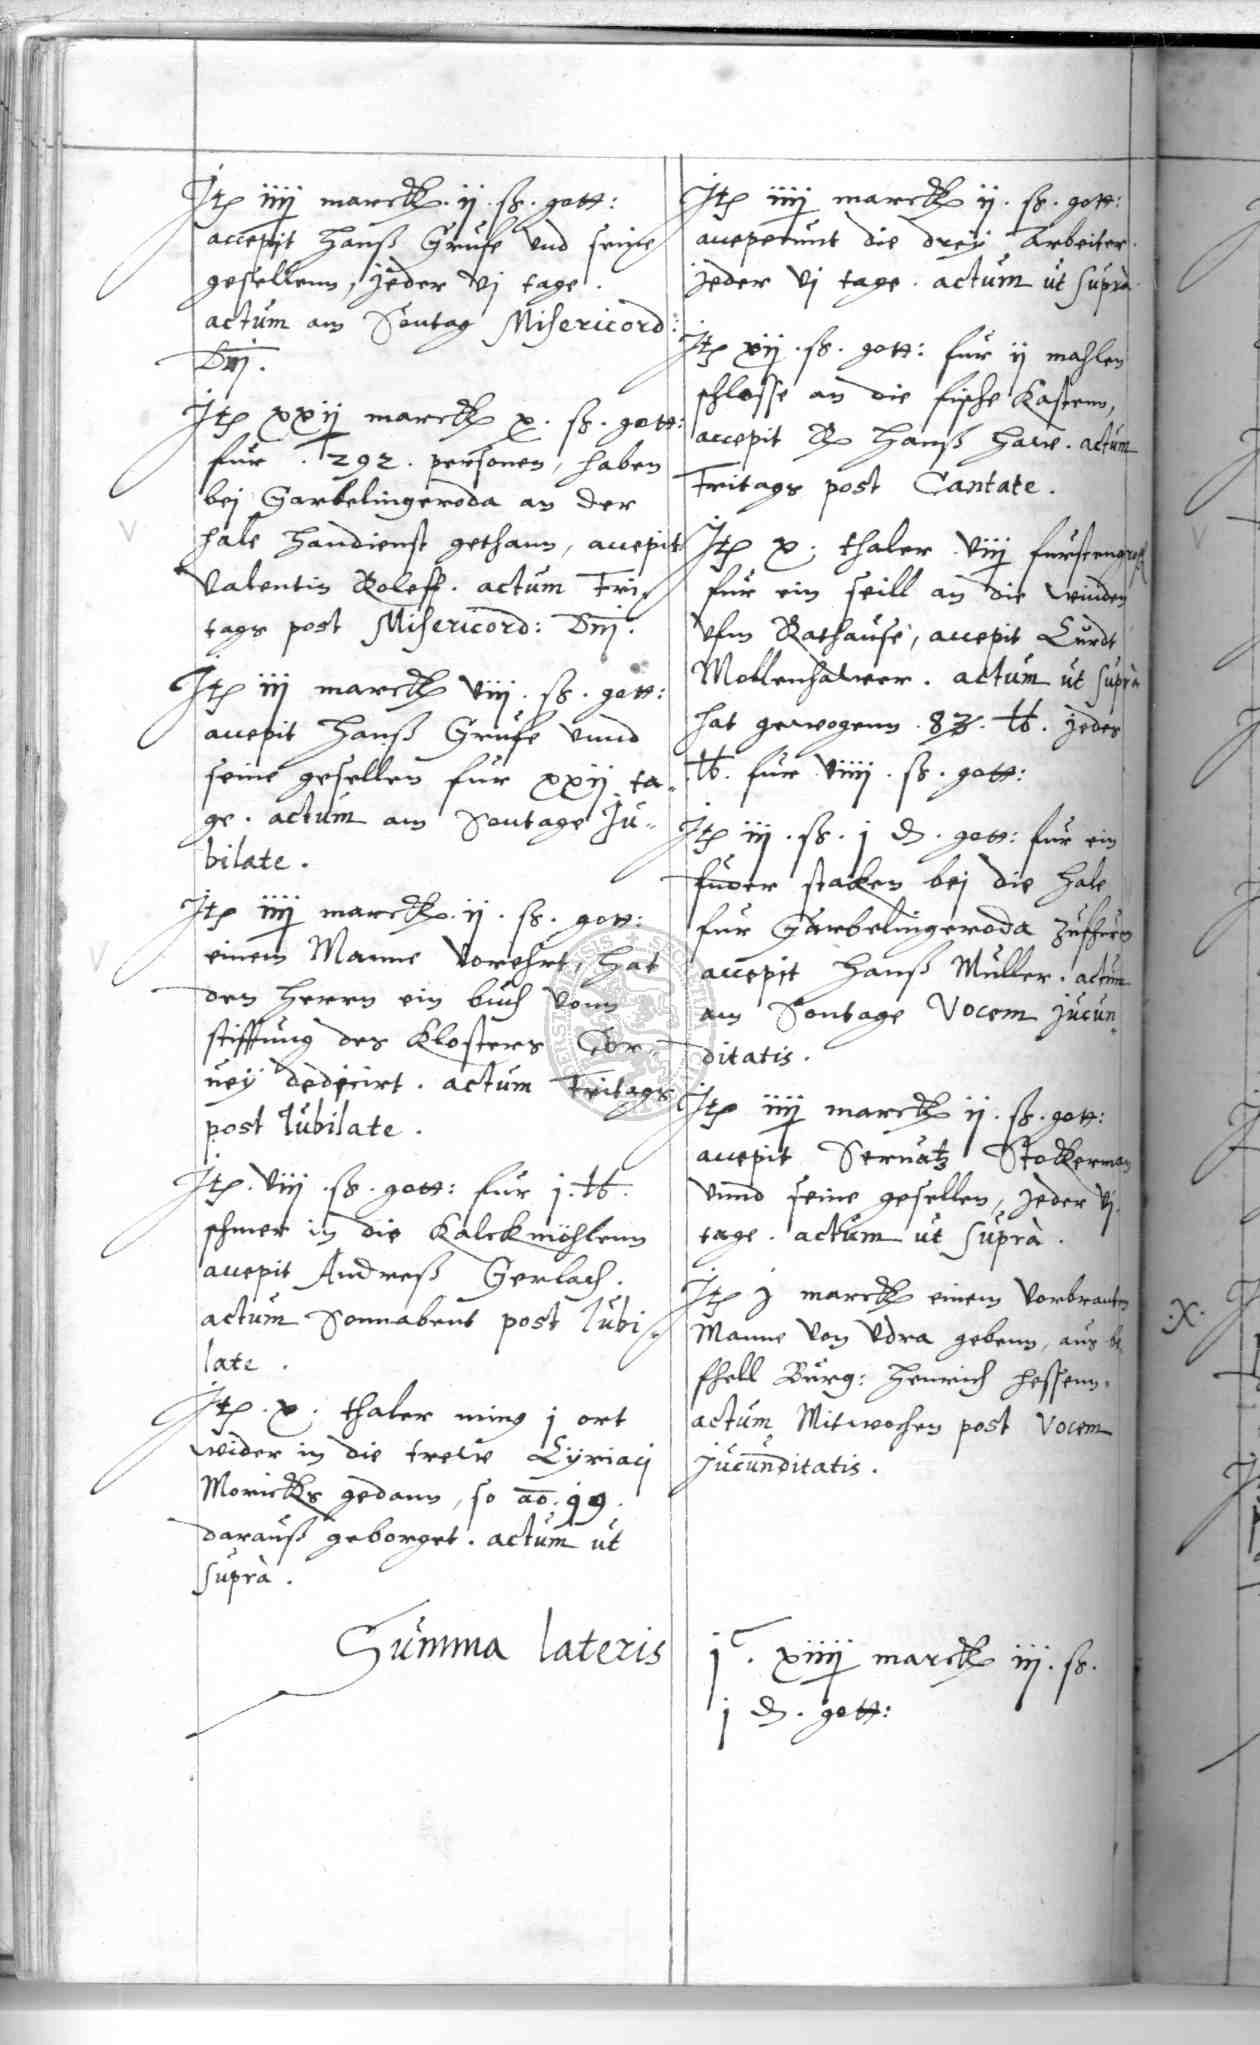 Itẽ iiij marck. ij. ß. gott:
accepit Hanß Grufe vnd seine
gesellenn, jeder vj tage.
actum am Sontag Misericord:
Dnj.
Itẽ xxij marck x. ß. gott:
für .292. personen, haben
bej Garbelingeroda an der
hale handienst gethann, accepit
Valentin Roleff. actum Fri-
tags post Misericord: Dnj.
Itẽ iij marck viij. ß. gott:
accepit Hanß Grufe vnnd
seine gesellen für xxij ta-
ge. actum am Sontage Ju-
bilate.
Itẽ iiij marck. ij. ß. gott:
einem Manne vorehrt, hat
den Herrn ein buch vonn
stifftung des Klosters Cor-
uey dedicirt. actum Fritags
post Iubilate.
Itẽ. viij. ß. gott: für j. lb.
schmer in die Kalckmöhlenn
accepit Andreß Gerlach.
actum Sonnabent post Iubi-
late.
Itẽ. x. thaler ming j ort
wider in die trewe Cyriacj
Morickes gedann, so ao. 99.
darauß geborget. actum ut
suprà.
Summa lateris
Itẽ iiij marck ij. ß. gott:
acceperunt die drey Arbeiter.
jeder vj tage. actum ut suprà.
Itẽ xij. ß. gott: für ij mahlen
schlosse an die fische Kastenn,
accepit Hanß Hawe. actum
Fritags post Cantate.
Itẽ x. thaler viij fürstengrosch
für ein seill an die winden
vfm Rathause, accepit Curdt
Mollenhawer. actum ut suprà
hat gewogenn .83. lb. jedes
lb. für viiij. ß. gott:
Itẽ iij. ß. j d. gott: für ein
fuder staken bej die hale
für Garbelingeroda zuffurn
accepit Hanß Müller. actum
am Sontage Vocem jucun-
ditatis.
Itẽ iiij marck ij. ß. gott:
accepit Seruatz Stockerman
vnnd seine gesellen, jeder vj.
tage. actum ut suprà.
Itẽ j marck einem vorbranten
Manne von Vdra gebenn, aus be-
fhell Bürg: Henrich Hessenn.
actum Mitwochen post Vocem
jucunditatis.
jC. xiiij marck iij. ß.
j d. gott: